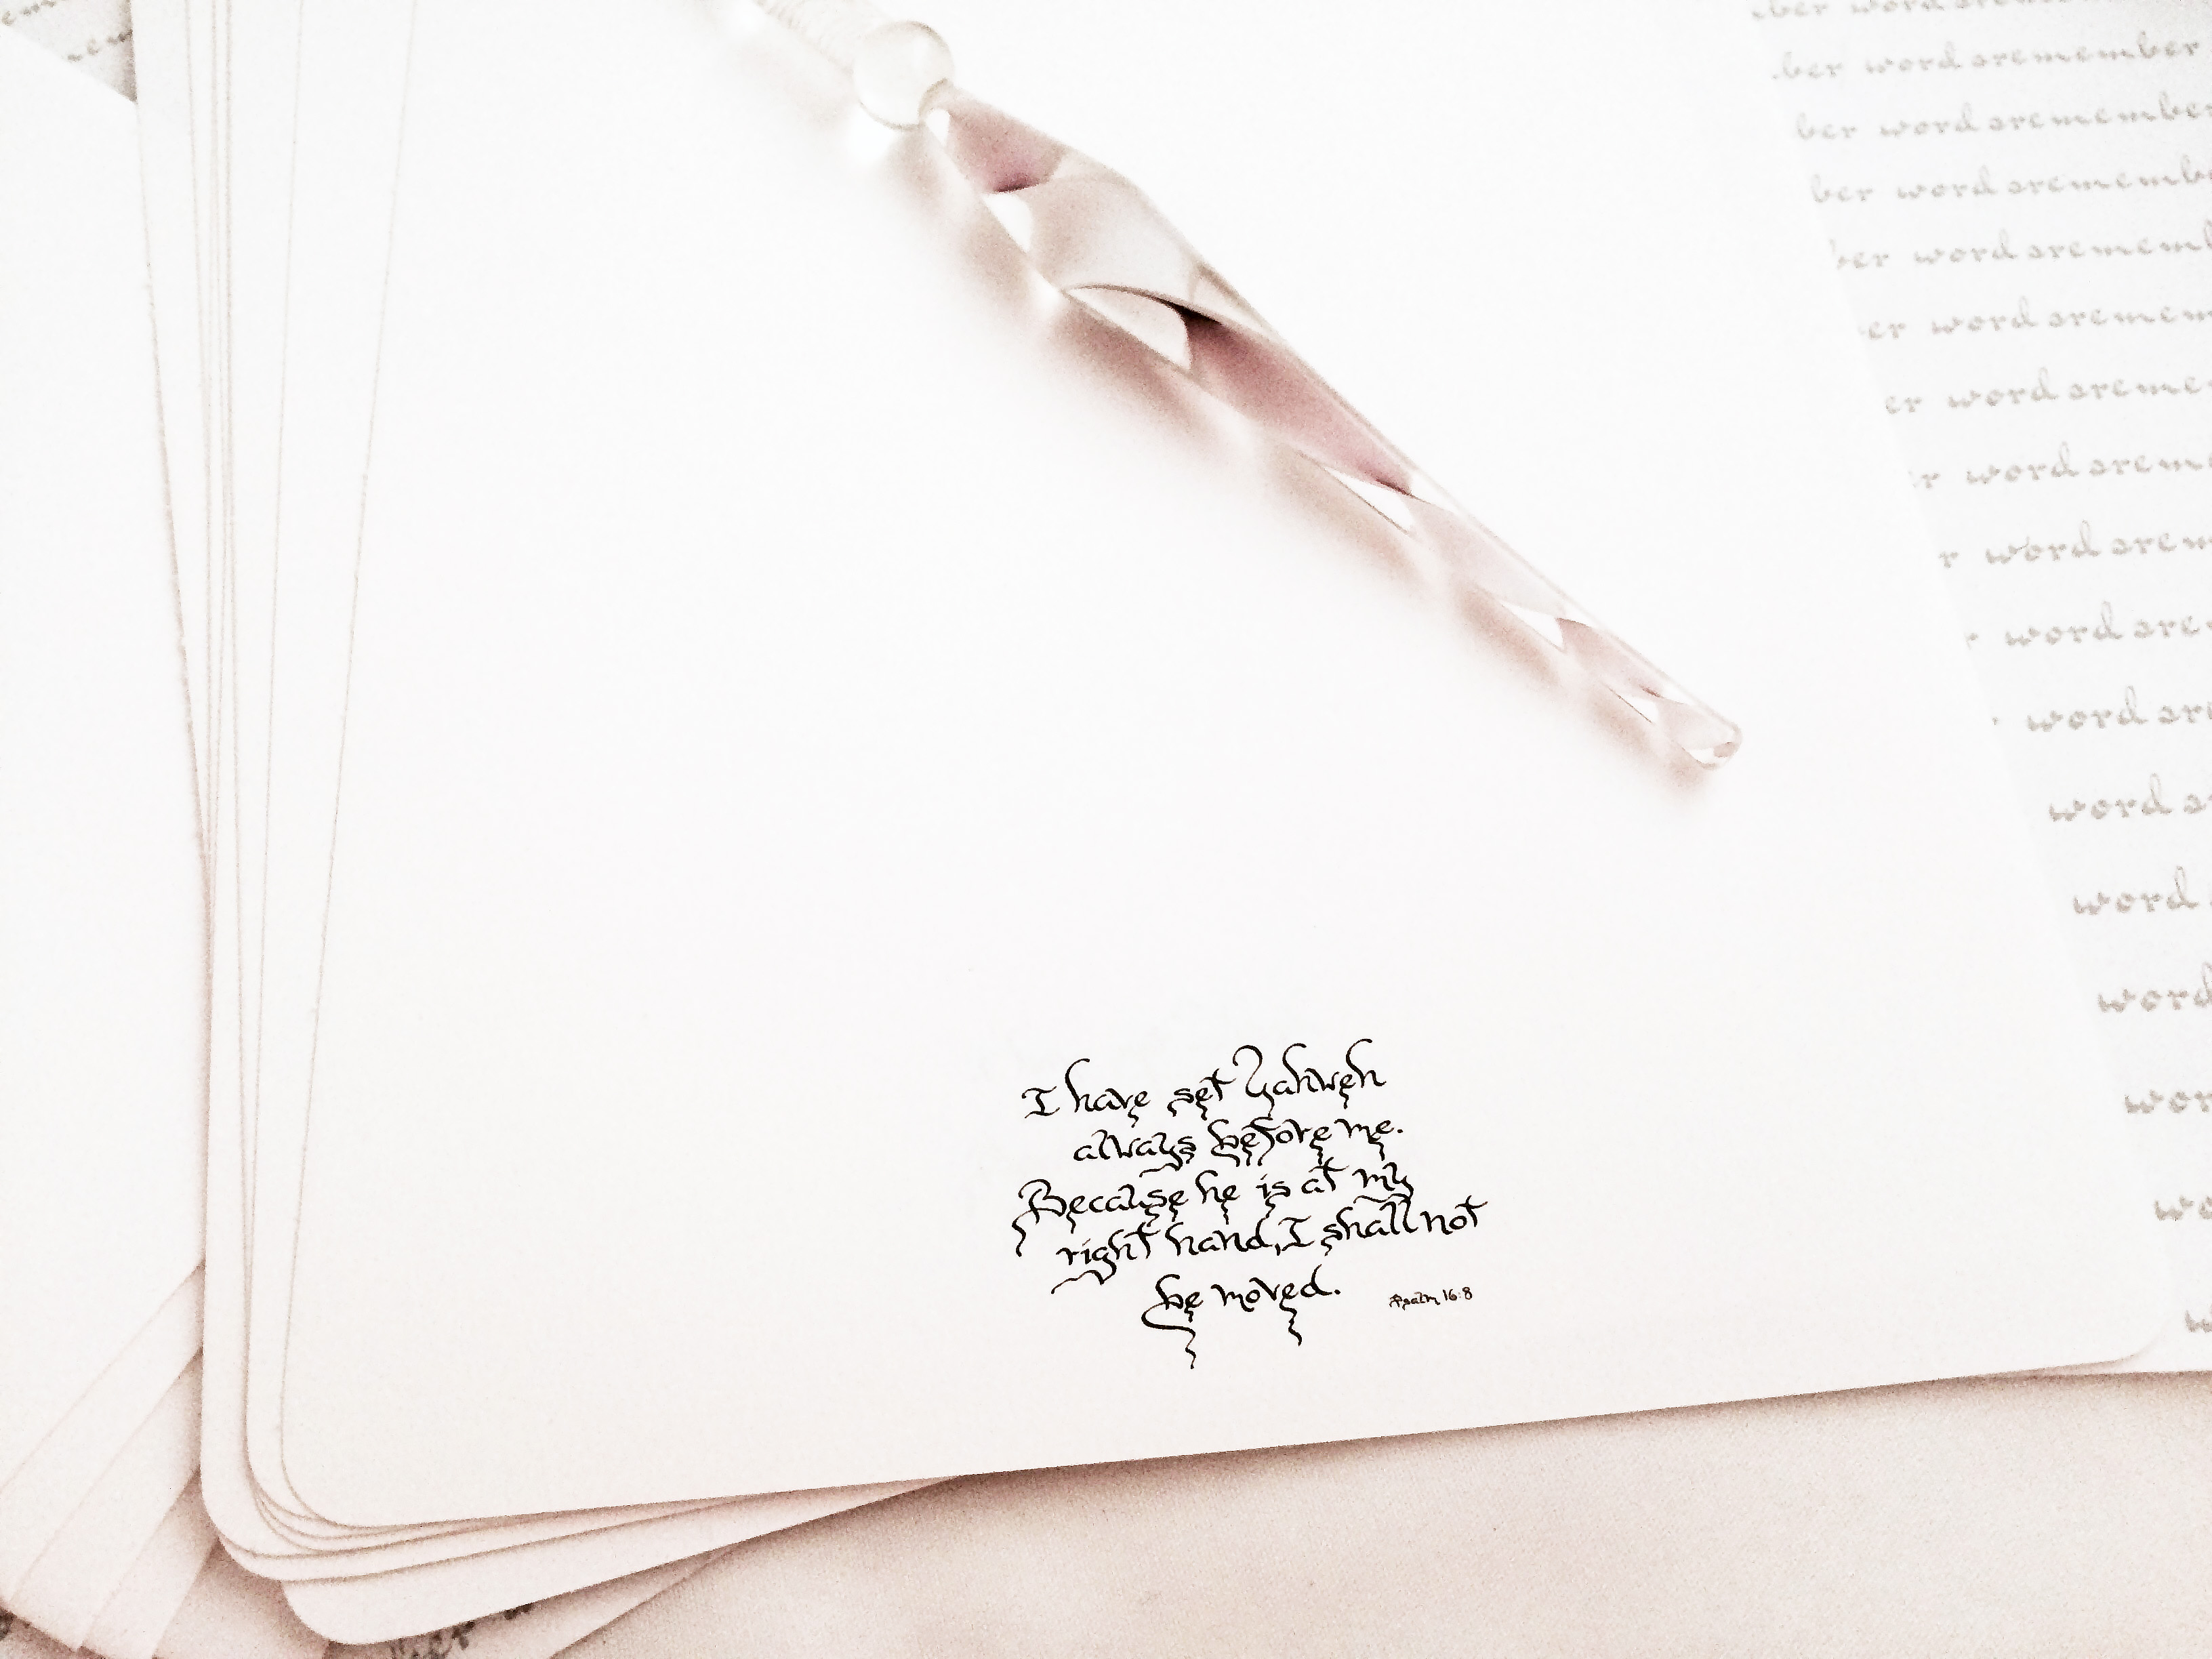 I have set Yahweh
always before me.
Because he is at my
right hand, I shall not
be moved.
Psalm 16:8
ber word aremember
ber word aremember
ber word aremember
ber word aremembe
ber word arememb
er word aremem
er word areme
r word arem
r word arem
word are
word are
word a
word
word
wor
wo
w